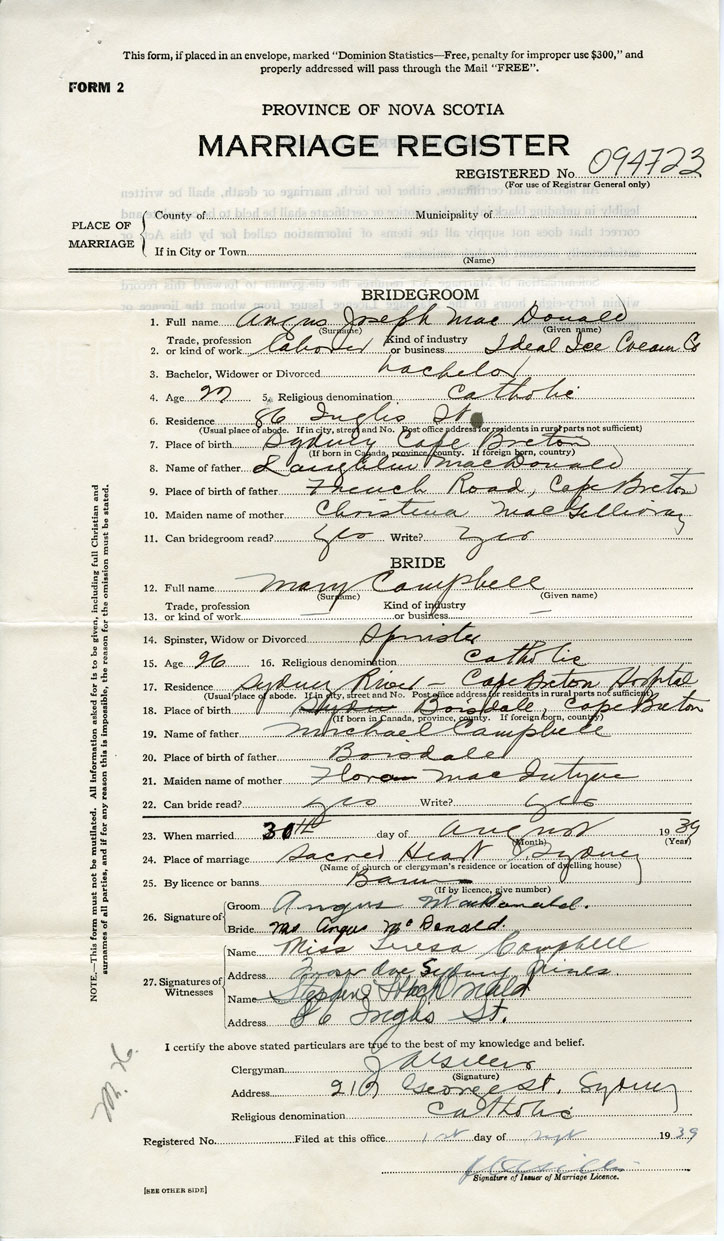 This form, if placed in an envelope, marked "Dominion Statistics—Free, penalty for improper use $300," and
properly addressed will pass through the Mail "FREE".
FORM 2
PROVINCE OF NOVA SCOTIA
MARRIAGE REGISTER
REGISTERED No. 094723
(For use of Registrar General only)
PLACE OF MARRIAGE
County of Municipality of
If in City or Town
(Name)
BRIDEGROOM
1. Full name Angus Joseph Mac Donald
(Surname) (Given name)
2. Trade, profession or kind of work laborer Kind of industry or business Ideal Ice Cream Co
3. Bachelor, Widower or Divorced bachelor
4. Age 5. Religious denomination Catholic
6. Residence 86 Inglis St.
(Usual place of abode. If in city, street and No. Post office address for residents in rural parts not sufficient)
7. Place of birth Sydney Cape Breton
(If born in Canada, province, county. If foreign born, country)
8. Name of father Laughlin MacDonald
9. Place of birth of father French Road, Cape Breton
10. Maiden name of mother Christena MacGillivray
11. Can bridegroom read? yes Write? yes
BRIDE
12. Full name Mary Campbell
(Surname) (Given name)
13. Trade, profession or kind of work — Kind of industry or business —
14. Spinster, Widow or Divorced Spinster
15. Age 26 16. Religious denomination Catholic
17. Residence Sydney River – Cape Breton Hospital
(Usual place of abode. If in city, street and No. Post office address for residents in rural parts not sufficient)
18. Place of birth Boisdale, Cape Breton
(If born in Canada, province, county. If foreign born, country)
19. Name of father Michael Campbell
20. Place of birth of father Boisdale
21. Maiden name of mother Flora MacIntyre
22. Can bride read? yes Write? yes
23. When married 30th day of August 1939
(Month) (Year)
24. Place of marriage Sacred Heart Sydney
(Name of church or clergyman's residence or location of dwelling house)
25. By licence or banns Banns
(If by licence, give number)
26. Signature of
Groom Angus MacDonald.
Bride Mrs Angus McDonald.
27. Signatures of Witnesses
Name Miss Teresa Campbell
Address Ave, Sydney Mines.
Name Stephen MacDonald
Address 86 Inglis St.
I certify the above stated particulars are true to the best of my knowledge and belief.
Clergyman
(Signature)
Address George St. Sydney
Religious denomination Catholic
Registered No. Filed at this office 1st day of Sept 1939
Signature of Issuer of Marriage Licence.
[SEE OTHER SIDE]
NOTE.—This form must not be mutilated. All information asked for is to be given, including full Christian and
surnames of all parties, and if for any reason this is impossible, the reason for the omission must be stated.